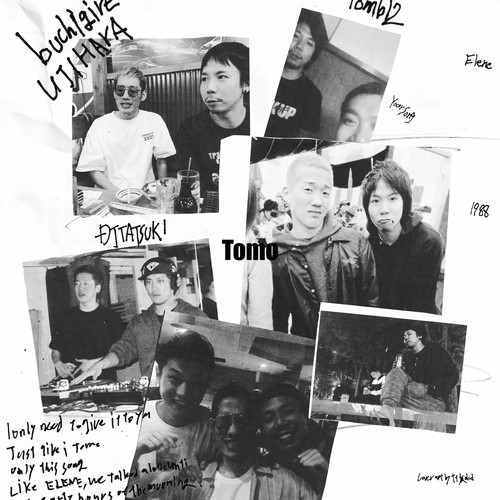 buchigire
UJIHARA
Tomb12
Elene
Your Song
1988
DJTATSUKI
Tomo
I only need to give it to ya
Just like i Tomo
only this song
Like ELENE, we talked about until
hours of the morning
Cover art by